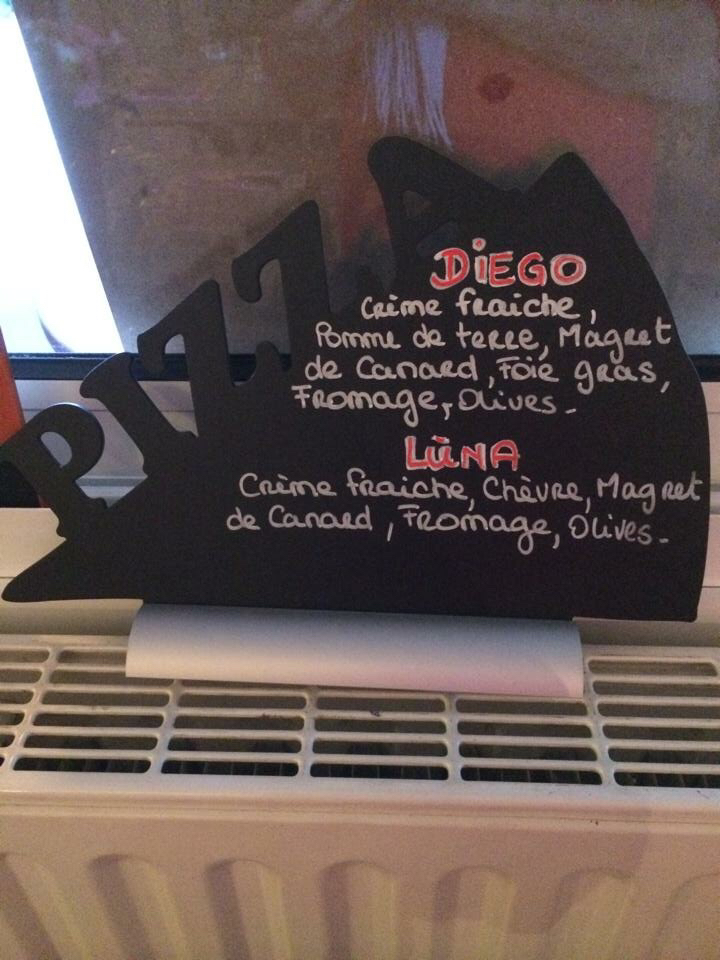 PIZZA
DiEGO
Crème fraiche,
Pomme de terre, Magret
de Canard, Foie gras,
Fromage, Olives.
LÙNA
Crème fraiche, Chèvre, Magret
de Canard, Fromage, Olives.